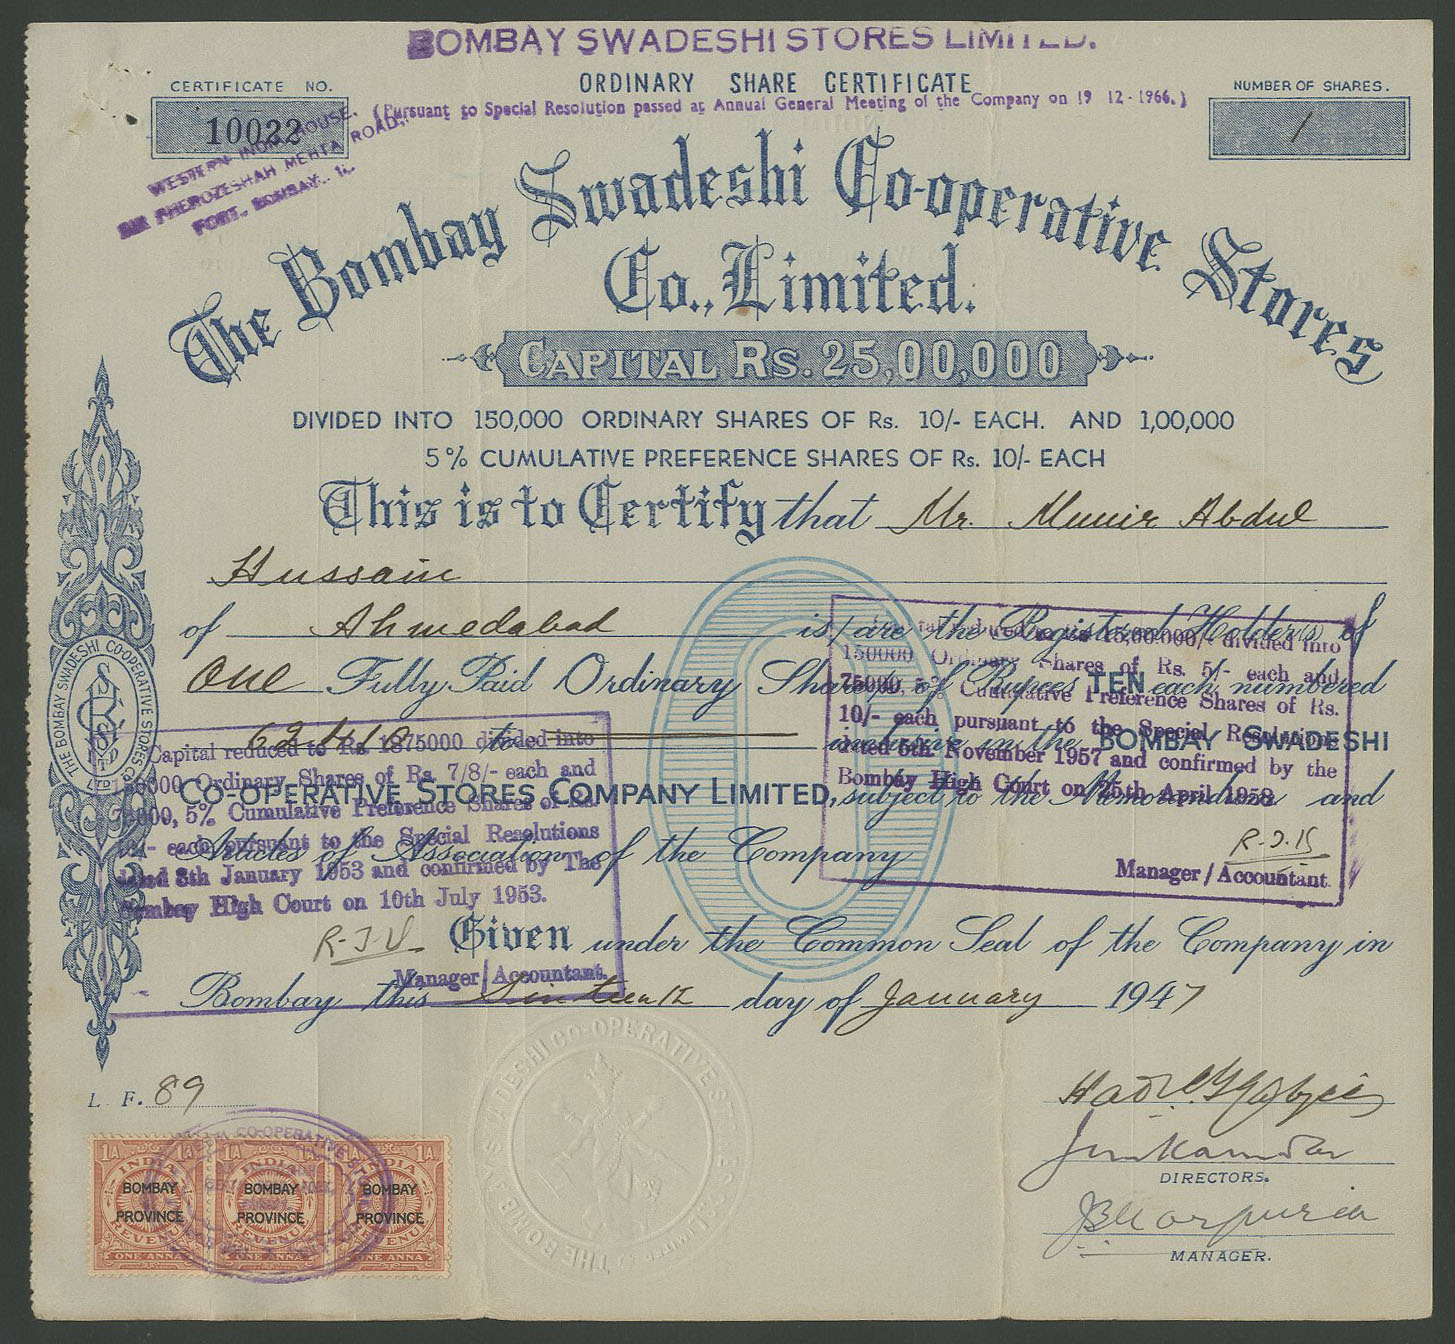 BOMBAY SWADESHI STORES LIMITED.
ORDINARY SHARE CERTIFICATE
(Pursuant to Special Resolution passed at Annual General Meeting of the Company on 19 12-1966.)
CERTIFICATE NO.
10022
NUMBER OF SHARES.
1
WESTERN INDIA HOUSE,
SIR PHEROZESHAH MEHTA ROAD,
FORT, BOMBAY.
The Bombay Swadeshi Co-operative Stores
Co., Limited.
CAPITAL Rs. 25,00,000
DIVIDED INTO 150,000 ORDINARY SHARES OF Rs. 10/- EACH. AND 1,00,000
5% CUMULATIVE PREFERENCE SHARES OF Rs. 10/- EACH
This is to Certify that Mr. Munir Abdul
Hussain
of Ahmedabad is/are the Registered Holder(s) of
One Fully Paid Ordinary Shares of Rupees TEN each numbered
62440 to inclusive in the BOMBAY SWADESHI
CO-OPERATIVE STORES COMPANY LIMITED, subject to the Memorandum and
Articles of Association of the Company
Given under the Common Seal of the Company in
Bombay this Sixteenth day of January 1947
Capital reduced to Rs. 15,00,000/- divided into
150000 Ordinary Shares of Rs. 5/- each and
75000, 5% Cumulative Preference Shares of Rs.
10/- each pursuant to the Special Resolution
dated 5th November 1957 and confirmed by the
Bombay High Court on 25th April 1958
Manager/Accountant.
Capital reduced to Rs 1875000 divided into
150000 Ordinary Shares of Rs 7/8/- each and
75000, 5% Cumulative Preference Shares of Rs.
10/- each pursuant to the Special Resolutions
dated 8th January 1953 and confirmed by The
Bombay High Court on 10th July 1953.
Manager/Accountant.
THE BOMBAY SWADESHI CO-OPERATIVE STORES CO. LTD
L. F. 89
DIRECTORS.
MANAGER.
1A 1A 1A 1A
INDIA INDIA INDIA
BOMBAY BOMBAY BOMBAY
PROVINCE PROVINCE PROVINCE
REVENUE REVENUE REVENUE
ONE ANNA ONE ANNA ONE ANNA